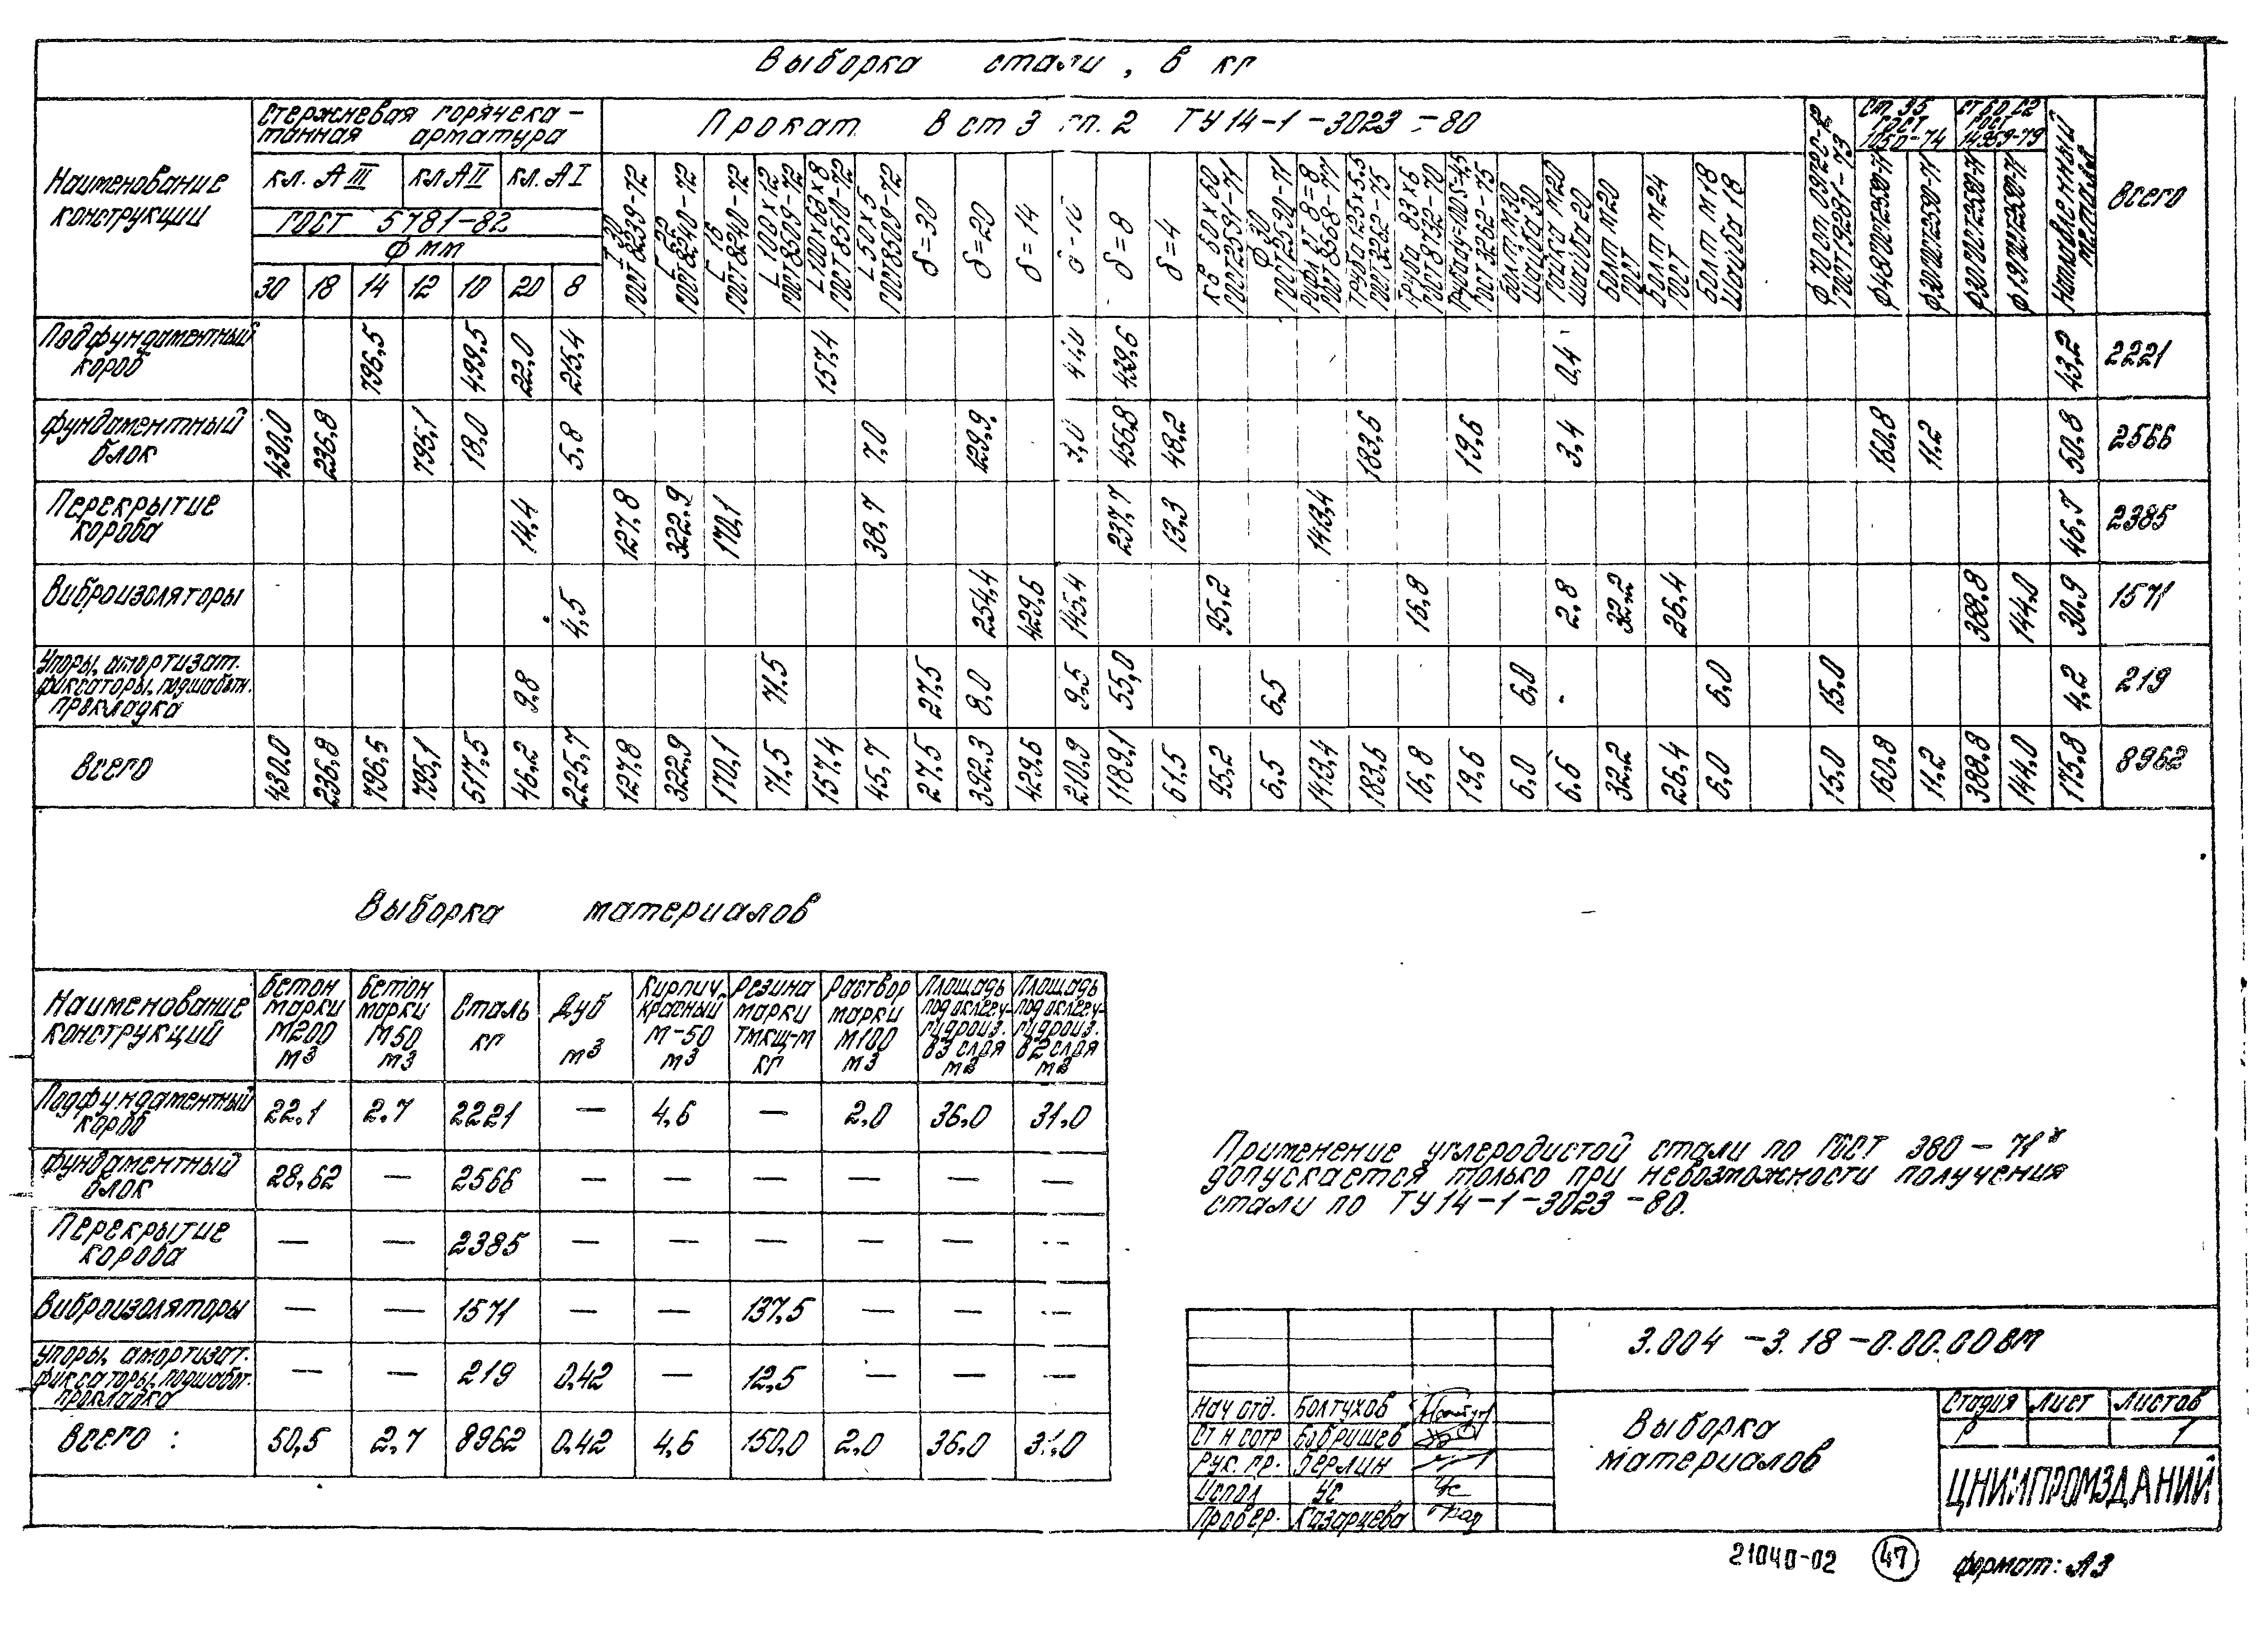 Выборка стали, в кг
Наименование конструкции
Стержневая горячека-
танная арматура
кл. А III кл А II кл. А I
ГОСТ 5781-82
Ф мм
30 18 14 12 10 20 8
Прокат В ст 3 гп. 2 ТУ 14-1-3023-80
I 20 ГОСТ 8239-72
ГОСТ 8240-72
[ 16 ГОСТ 8240-72
L 100×12 ГОСТ 8509-72
L 100×63×8 ГОСТ 8510-72
L 50×5 ГОСТ 8509-72
δ=30
δ=20
δ=14
δ-10
δ=8
δ=4
кв 60×60 ГОСТ 2591-71
Ф 30 ГОСТ 2590-71
Рифл ст δ=8 ГОСТ 8568-77
Труба 125×5.5 ГОСТ 3262-75
Труба 83×6 ГОСТ 8732-70
ГОСТ 3262-75
Болт М30 Шайба 30
Гайка М20 Шайба 20
Болт М20 ГОСТ
Болт М24 ГОСТ
Болт М18 Шайба 18
Ф 70 ст 09Г2С-12 ГОСТ 19281-73
Ст 35 ГОСТ 1050-74
Ф48 ГОСТ 2590-71
Ф20 ГОСТ 2590-71
Ст 60 С2 ГОСТ 14959-79
Ф30 ГОСТ 2590-71
Ф19 ГОСТ 2590-71
Наплавленный металл
Всего
Подфундаментный короб 796,5 499,5 22,0 215,4 157,4 41,0 439,6 0,4 43,2 2221
Фундаментный блок 430,0 236,8 795,1 18,0 5,8 7,0 129,9 7,0 456,8 48,2 183,6 19,6 3,4 160,8 11,2 50,8 2566
Перекрытие короба 14,4 127,8 322,9 170,1 38,7 237,7 13,3 1413,4 46,7 2385
Виброизоляторы 4,5 254,4 429,6 145,4 95,2 16,8 2,8 32,2 26,4 388,8 144,0 30,9 1571
Упоры, амортизат. фиксаторы, подшаботн. прокладка 9,8 71,5 27,5 8,0 9,5 55,0 6,5 6,0 6,0 15,0 4,2 219
Всего 430,0 236,8 796,5 795,1 517,5 46,2 225,7 127,8 322,9 170,1 71,5 157,4 45,7 27,5 392,3 429,6 210,9 1189,1 61,5 95,2 6,5 1413,4 183,6 16,8 19,6 6,0 6,6 32,2 26,4 6,0 15,0 160,8 11,2 388,8 144,0 175,8 8962
Выборка материалов
Наименование конструкций
Бетон марки М200 м3
Бетон марки М50 м3
Сталь кг
Дуб м3
Кирпич красный М-50 м3
Резина марки ТМКЩ-М кг
Раствор марки М100 м3
Площадь под оклееч- гидроиз. в 3 слоя м2
Площадь под оклееч- гидроиз. в 2 слоя м2
Подфундаментный короб 22,1 2,7 2221 — 4,6 — 2,0 36,0 31,0
Фундаментный блок 28,62 — 2566 — — — — — —
Перекрытие короба — — 2385 — — — — — —
Виброизоляторы — — 1571 — — 137,5 — — —
Упоры, амортизат. фиксаторы, подшабот. прокладка — — 219 0,42 — 12,5 — — —
Всего : 50,5 2,7 8962 0,42 4,6 150,0 2,0 36,0 31,0
Применение углеродистой стали по ГОСТ 380-71*
допускается только при невозможности получения
стали по ТУ 14-1-3023-80.
3.004-3.18-0.00.00ВМ
Нач отд. Болтухов
Ст н сотр Бобрищев
Рук. гр. Берлин
Испол Ус
Провер. Казарцева
Выборка
материалов
Стадия Лист Листов
Р 1
ЦНИИПРОМЗДАНИЙ
21040-02 47 формат: А3